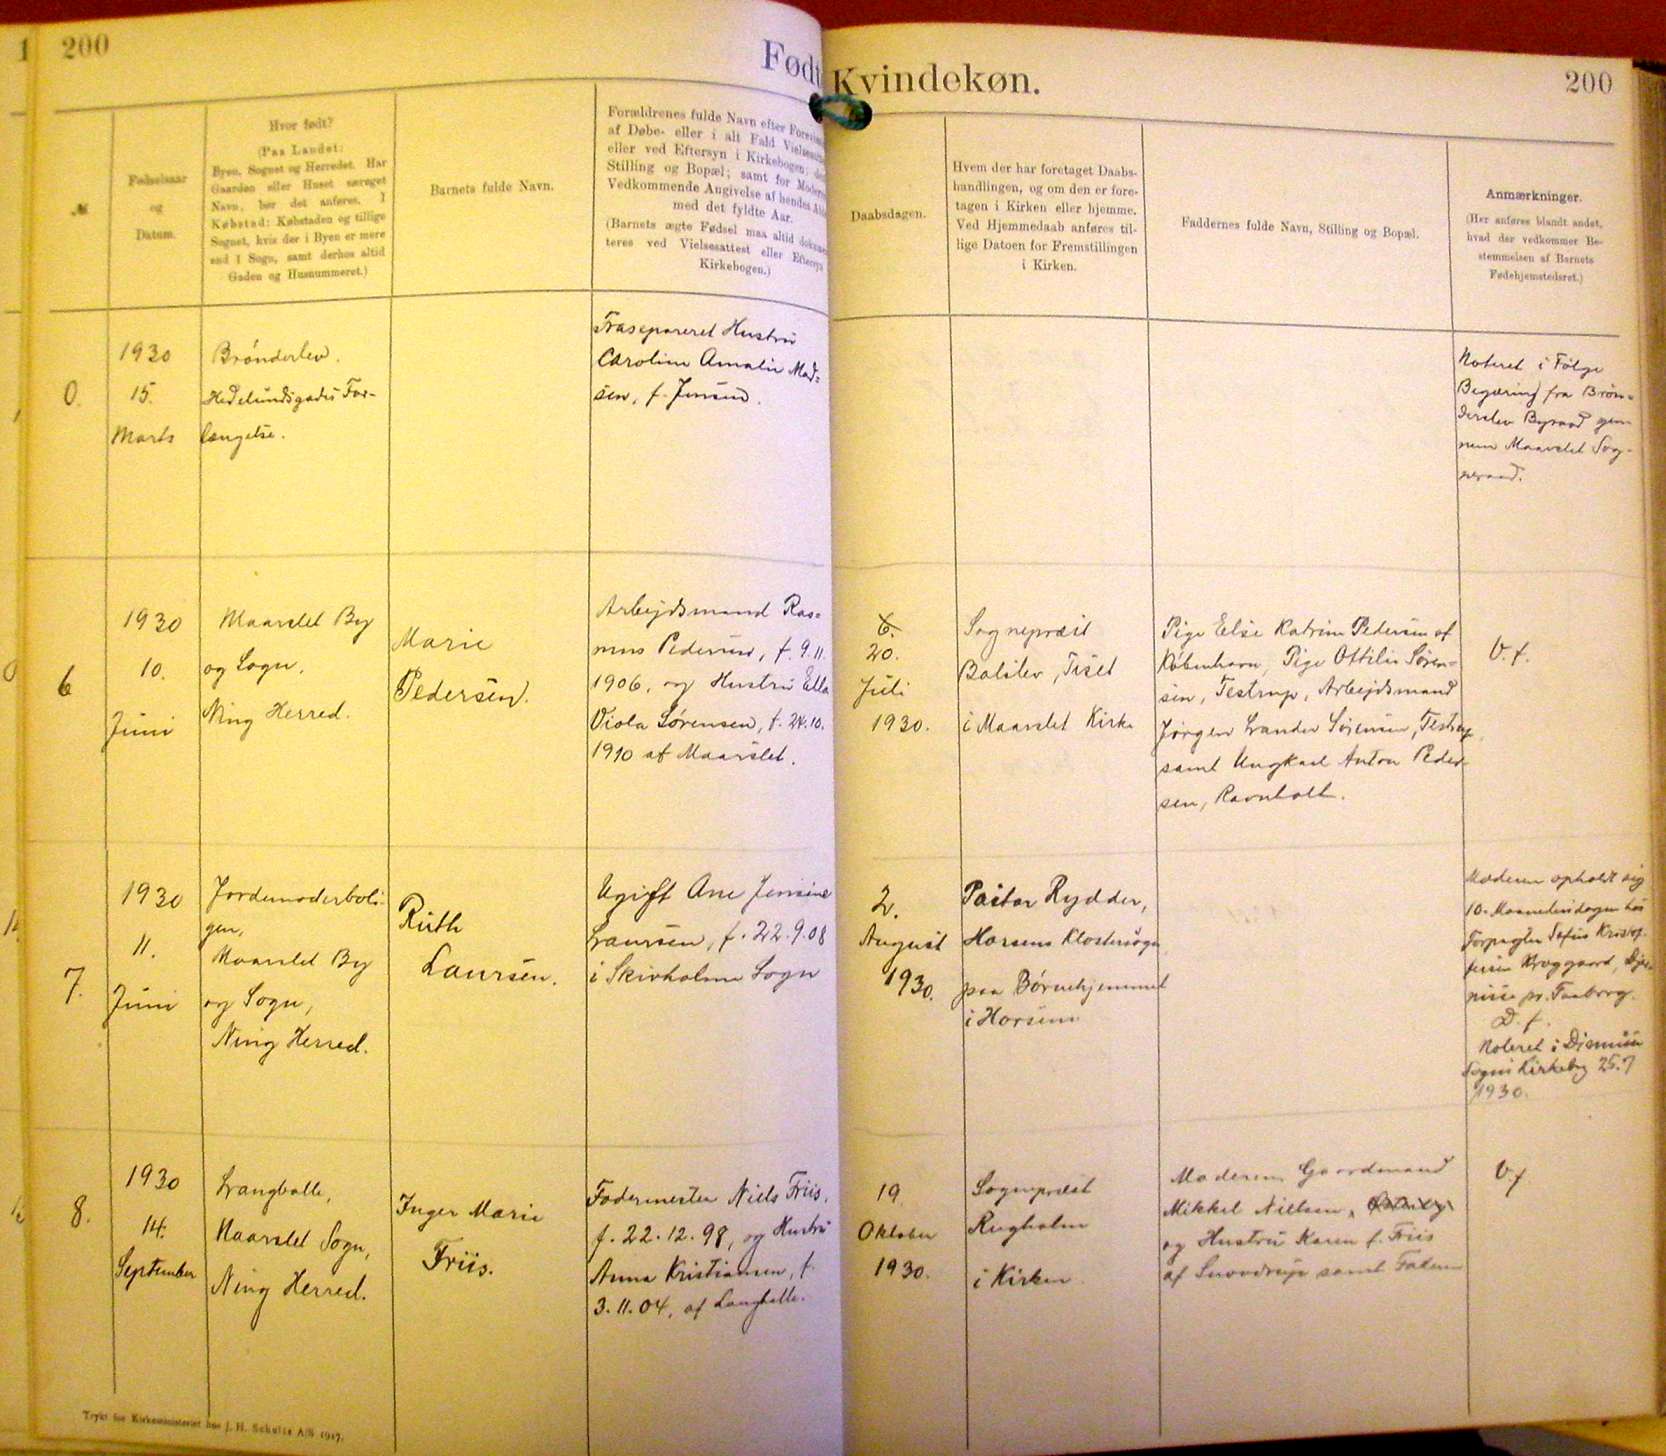 200
Født
Kvindekøn.
200
№
Fødselsaar
og
Datum.
Hvor født?
(Paa Landet:
Byen, Sognet og Herredet. Har
Gaarden eller Huset særeget
Navn, bør det anføres. I
Købstad: Købstaden og tillige
Sognet, hvis der i Byen er mere
end 1 Sogn, samt derhos altid
Gaden og Husnummeret.)
Barnets fulde Navn.
Forældrenes fulde Navn efter
af Døbe- eller i alt Fald
eller ved Eftersyn i Kirkebogen;
Stilling og Bopæl; samt for
Vedkommende Angivelse af hendes
med det fyldte Aar.
(Barnets ægte Fødsel maa altid
teres ved Vielsesattest eller Eftersyn
Kirkebogen.)
Daabsdagen.
Hvem der har foretaget Daabs-
handlingen, og om den er fore-
tagen i Kirken eller hjemme.
Ved Hjemmedaab anføres til-
lige Datoen for Fremstillingen
i Kirken.
Faddernes fulde Navn, Stilling og Bopæl.
Anmærkninger.
(Her anføres blandt andet,
hvad der vedkommer Be-
stemmelsen af Barnets
Fødehjemstedsret.)
0.
1930
15.
Marts
Brønderslev.
Hedelundsgades For-
længelse.
Frasepareret Hustru
Caroline Amalie Mad-
sen, f. Jensen.
Noteret i Følge
Begæring fra Brøn-
derslev Byraad gen-
nem Maarslet Sog-
neraad.
6
1930
10.
Juni
Maarslet By
og Sogn.
Ning Herred.
Marie
Pedersen.
Arbejdsmand Ras-
mus Pedersen, f. 9.11.
1906, og Hustru Ella
Viola Sørensen, f. 24.10.
1910 af Maarslet.
6.
20.
Juli
1930.
Sognepræst
Balslev, Tiset
i Maarslet Kirke
Pige Else Katrine Pedersen af
København, Pige Ottilie Søren-
sen, Testrup, Arbejdsmand
Jørgen Sander Sørensen, Testrup,
samt Ungkarl Anton Peder-
sen, Ravnholt.
V. f.
7.
1930
11.
Juni
Jordemoderboli-
gen,
Maarslet By
og Sogn,
Ning Herred.
Ruth
Laursen.
Ugift Ane Jensine
Laursen, f. 22.9.08
i Skivholme Sogn
2.
August
1930.
Pastor Rydder,
Horsens Klostersogn
paa Børnehjemmet
i Horsens
Moderen opholdt sig
10. Maanedsdagen hos
Forpagter Sofus
pr. Faaborg.
D. f.
Noteret i
Sogns Kirkebog 25.7
1930.
8.
1930
14.
September
Langballe,
Maarslet Sogn,
Ning Herred.
Inger Marie
Friis.
Fodermester Niels Friis,
f. 22.12.98, og Hustru
Anna Kristiansen, f.
3.11.04, af Langballe.
19.
Oktober
1930.
Sognepræst
Rugholm
i Kirken
Moderen, Gaardmand
Mikkel Nielsen,
og Hustru Karen f. Friis
af Snovdrup samt Faderen
V. f
Trykt for Kirkeministeriet hos J. H. Schultz A/S 1917.